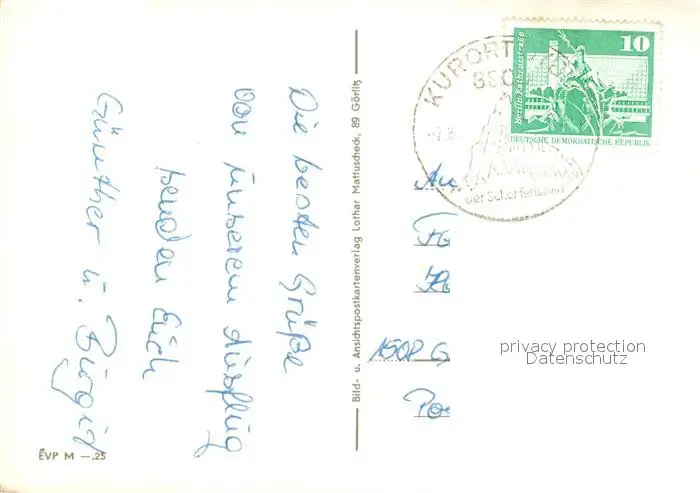 Die besten Grüße
von unserem Ausflug
senden Euch
Günther u. Birgit
EVP M —.25
Bild- u. Ansichtspostkartenverlag Lothar Mattuscheck, 89 Görlitz
KURORT
der Scharfenstein
Berlin-Rathausstraße
10
DEUTSCHE DEMOKRATISCHE REPUBLIK
privacy protection
Datenschutz